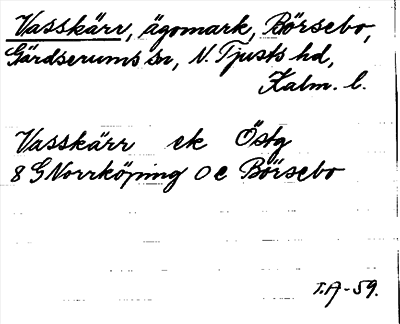 Vasskärr, ägomark, Börsebo,
Gärdserums sn, N. Tjusts hd,
Kalm. l.
Vasskärr ek Östg
8 G Norrköping 0 e Börsebo
T.A-59.